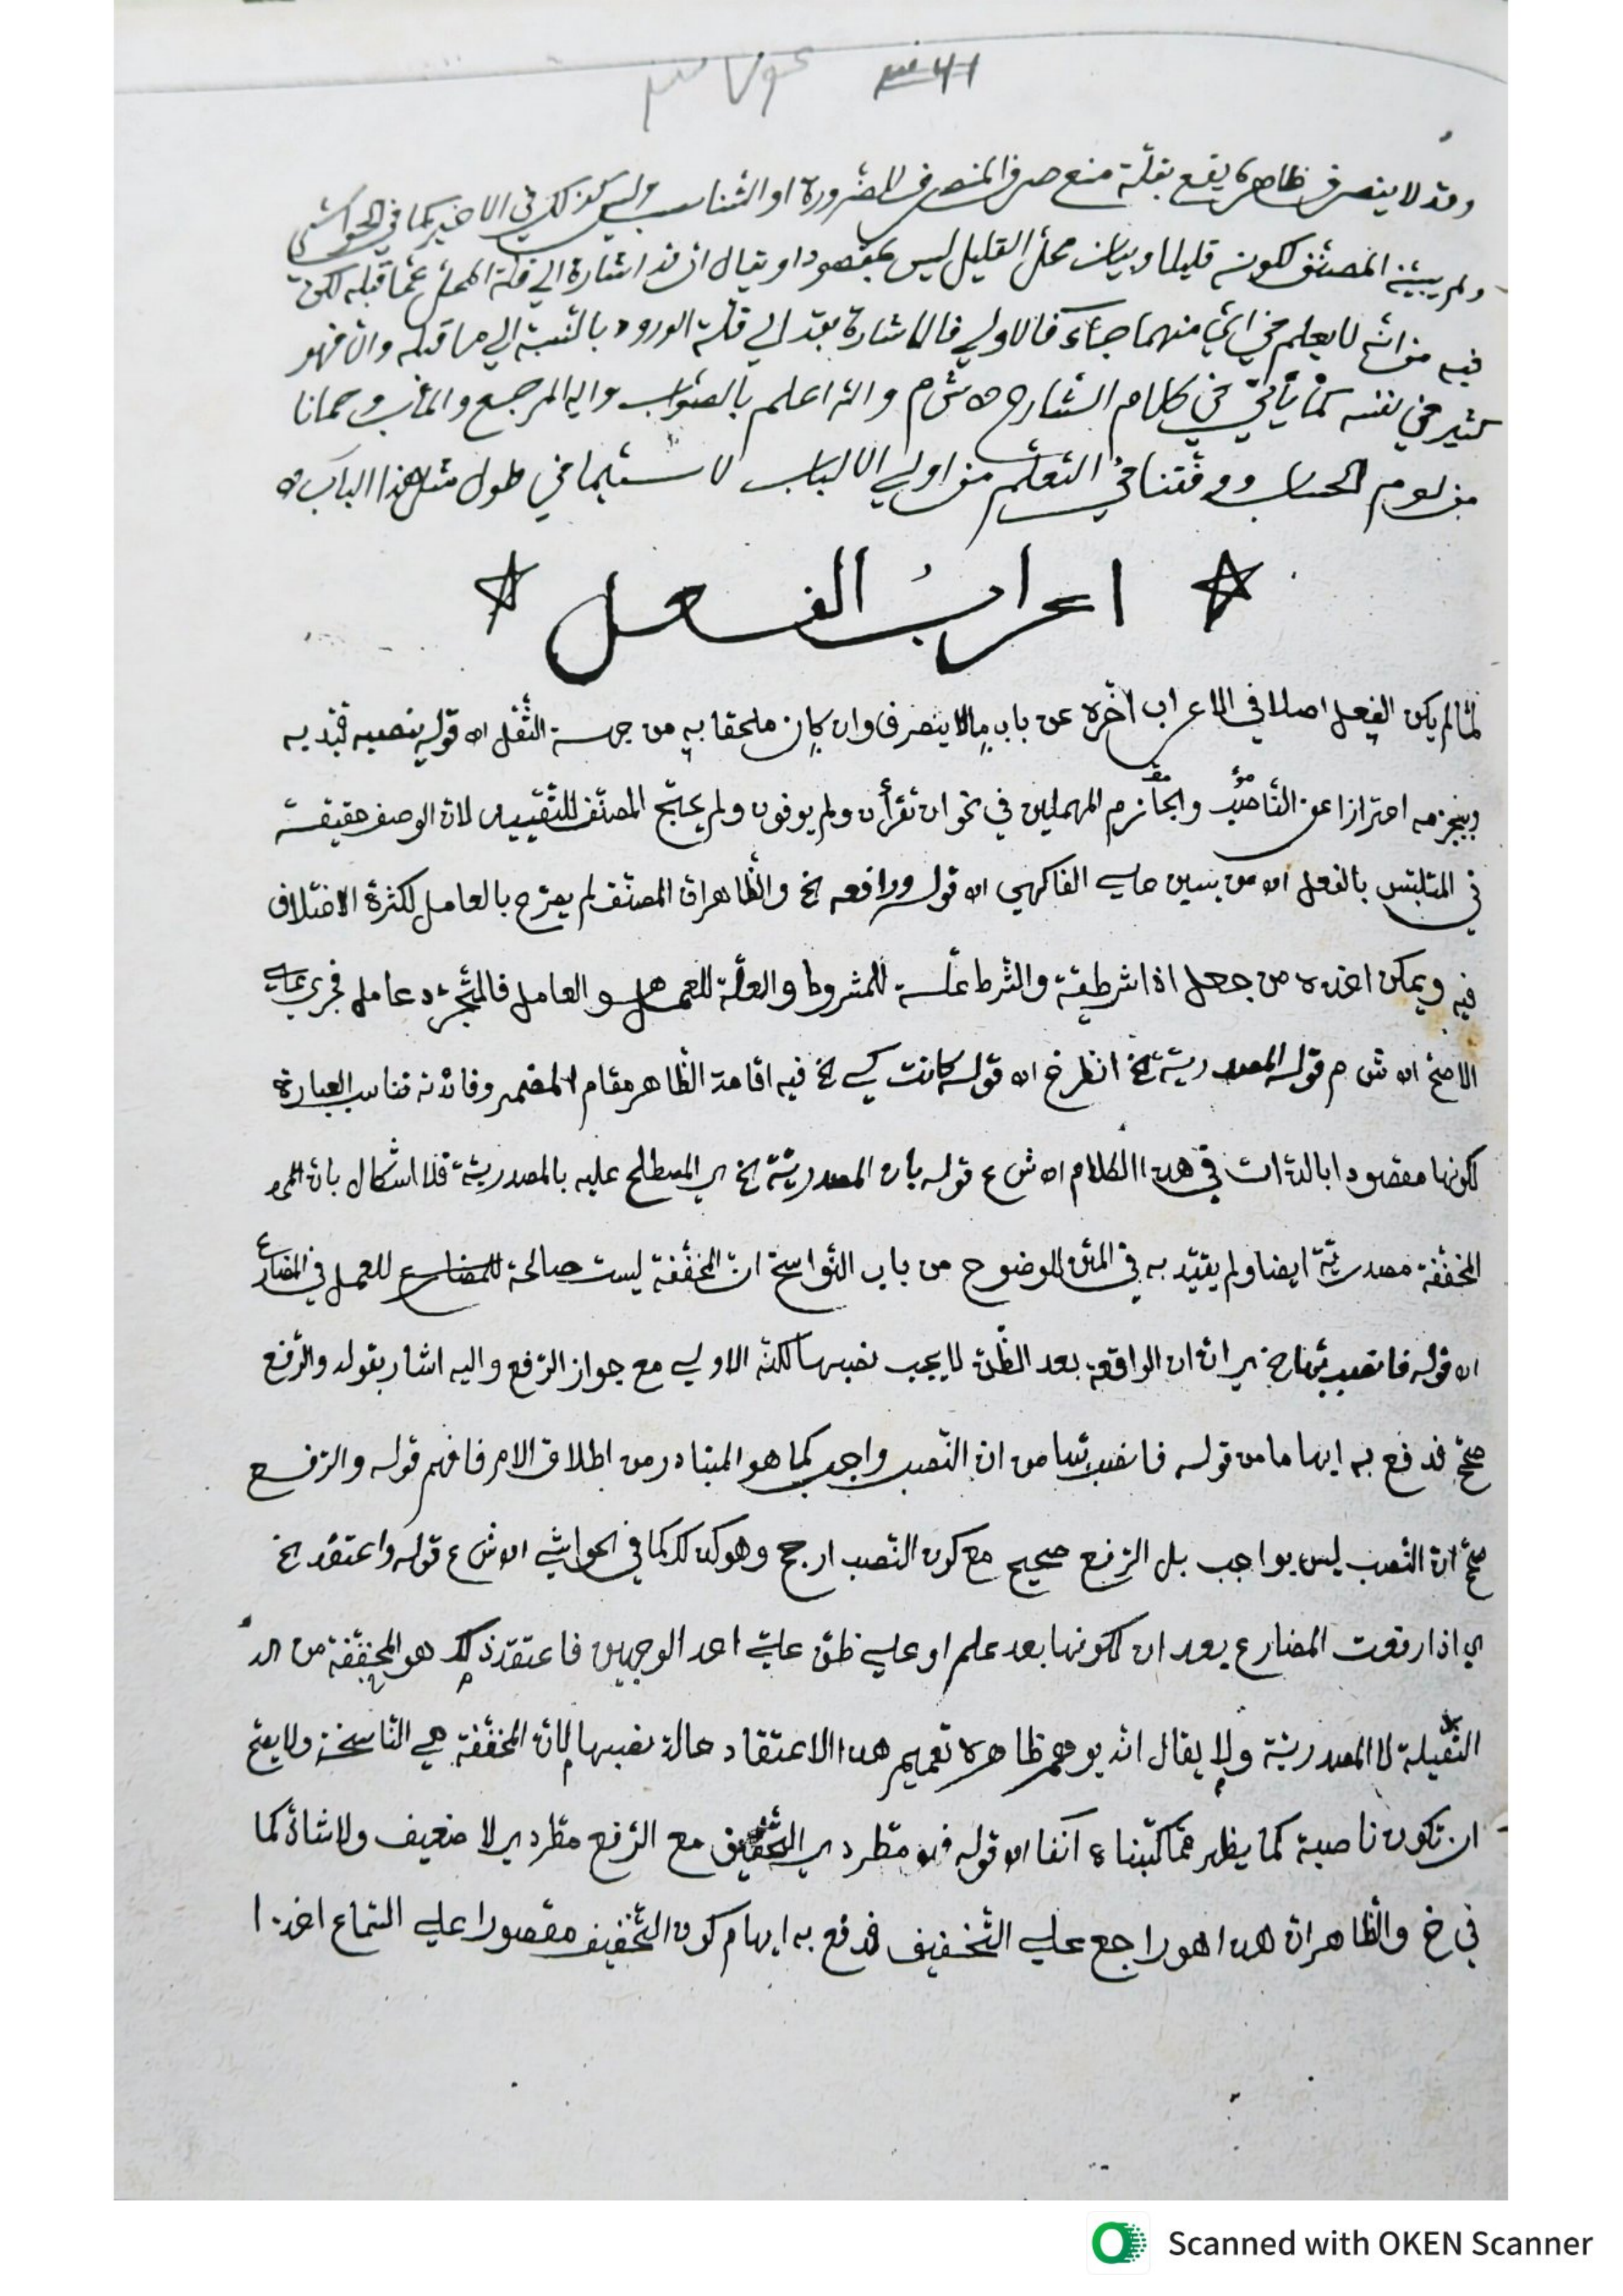 وقد لا ينصرف ظاهره يقع بقلّة منع صرف المنصرف للضرورة او التناسب وليس كذلك في الاخير كما في الحواشي
ولم يبيّنه المصنّف لكونه قليلا وبيان محلّ القليل ليس بمقصود او يقال ان قد اشارة الي قلّة المحلّ عمّا قبله لكن
فيه من انّه لا يعلم في ايّ منهما جاء فالاولي فالاشارة بقد الي قلّة الورود بالنّسبة الي ما قبله وان فهو
كثير في نفسه كما يأتي في كلام الشّارح اه ش م والله اعلم بالصّواب واليه المرجع والمأب وحمانا
من لوم الحساب ووفّقنا في التعلّم من اولي الالباب لا سيّما في طول مثل هذا الباب اه
اعراب الفعل
لمّا لم يكن الفعل اصلا في الاعراب اخّره عن باب مالا ينصرف وان كان ملحقا به من جهة الثّقل اه قوله ينصبه قيّد به
ويجزمه احترازا عن النّاصب والجازم المهملين في نحو ان تقرأن ولم يوفون ولم يحتج المصنّف للتّقييد لانّ الوصف حقيقة
في المتلبّس بالفعل اه من يسين علي الفاكهي اه قوله ورافعه خ والظّاهر انّ المصنّف لم يصرّح بالعامل لكثرة الاختلاف
فيه ويمكن اخذه من جعل اذا شرطيّة والشّرط علّة للمشروط والعلّة للعمل هو العامل فالتّجرّد عامل فجري علي
الاصحّ اه ش م قوله المصدريّة خ انظر خ اه قوله كانت كي خ فيه اقامة الظّاهر مقام المضمر وفائدته تناسب العبارة
لكونها مقصودا بالذّات في هذا الكلام اه ش ع قوله بان المصدريّة خ اي المصطلح عليه بالمصدريّة فلا اشكال بانّ
المخفّفة مصدريّة ايضا ولم يقيّد به في المتن لوضوح من باب النّواسخ انّ المخفّفة ليست صالحة للعمل في المضارع
اه قوله فانصب بها خ اي انّ ان الواقعة بعد الظّنّ لا يجب نصبها لكنّه الاولي مع جواز الرّفع واليه اشار بقوله والرّفع
صحّح فدفع به ايهاما من قوله فانصب بها من ان النّصب واجب كما هو المتبادر من اطلاق الامر فافهم قوله والرّفع
صحّح انّ النّصب ليس بواجب بل الرّفع صحيح مع كون النّصب ارجح وهو كذلك كما في الحواشي اه ش ع قوله واعتقد خ
اي اذا رفعت المضارع بعد ان لكونها بعد علم او علي ظنّ علي احد الوجهين فاعتقد ذلك هو المخفّفة من
الثّقيلة لا المصدريّة ولا يقال انّه يوهم ظاهره تعميم هذا الاعتقاد حالة نصبها لانّ المخفّفة هي النّاسخة ولا يصحّ
ان تكون ناصبة كما يظهر ممّا كتبناه آنفا اه قوله فهو مطّرد اي التّخفيف مع الرّفع مطّرد اي لا ضعيف ولا شاذّ كما
في خ والظّاهر انّ هذا هو راجع علي التّخفيف فدفع به ايهام كون التّخفيف مقصورا علي السّماع اخذا
Scanned with OKEN Scanner